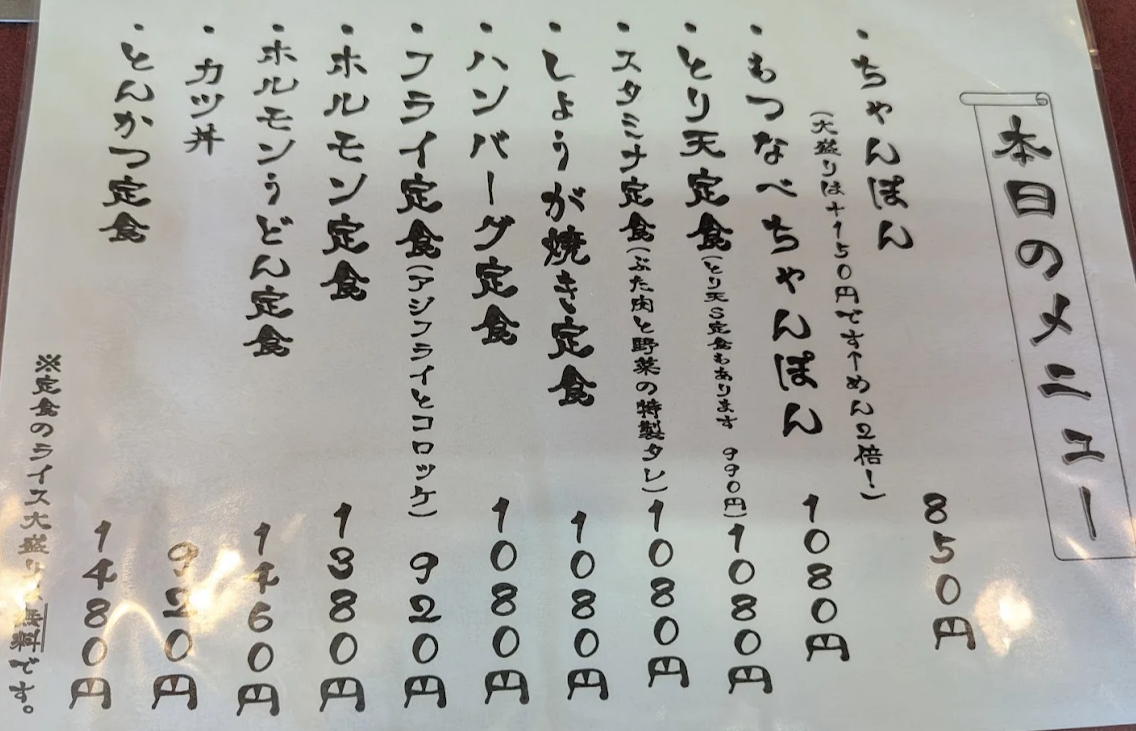 本日のメニュー
・ちゃんぽん 850円
(大盛りは+150円です↑めん2倍!)
・もつなべちゃんぽん 1080円
・とり天定食(とり天S定食もあります 990円) 1080円
・スタミナ定食(ぶた肉と野菜の特製タレ) 1080円
・しょうが焼き定食 1080円
・ハンバーグ定食 1080円
・フライ定食(アジフライとコロッケ) 920円
・ホルモン定食 1380円
・ホルモンうどん定食 1460円
・カツ丼 920円
・とんかつ定食 1480円
※定食のライス大盛り 無料です。